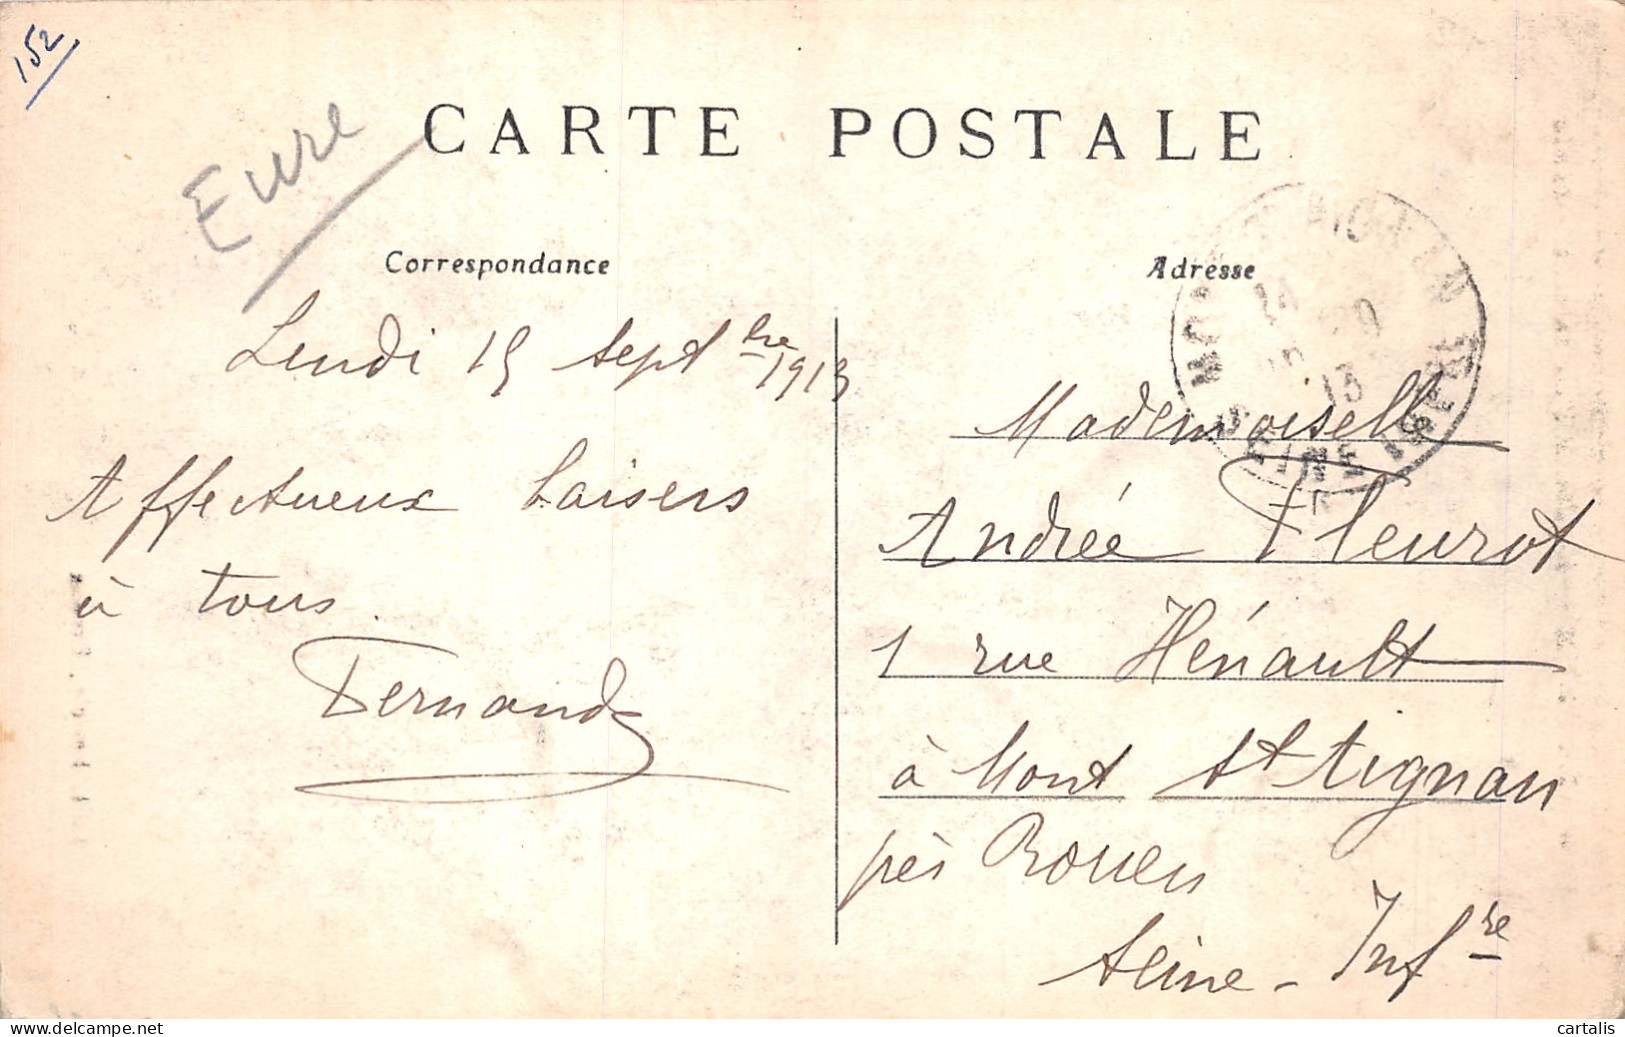 152
Eure
CARTE POSTALE
Correspondance
Lundi 15 septbre 1913
Affectueux baisers
à tous.
Fernand
Adresse
13
SEINE INFERE
Mademoiselle
Andrée Fleurot
1 rue Hénault
à Mont St Aignan
près Rouen
Seine - Infre
cartalis